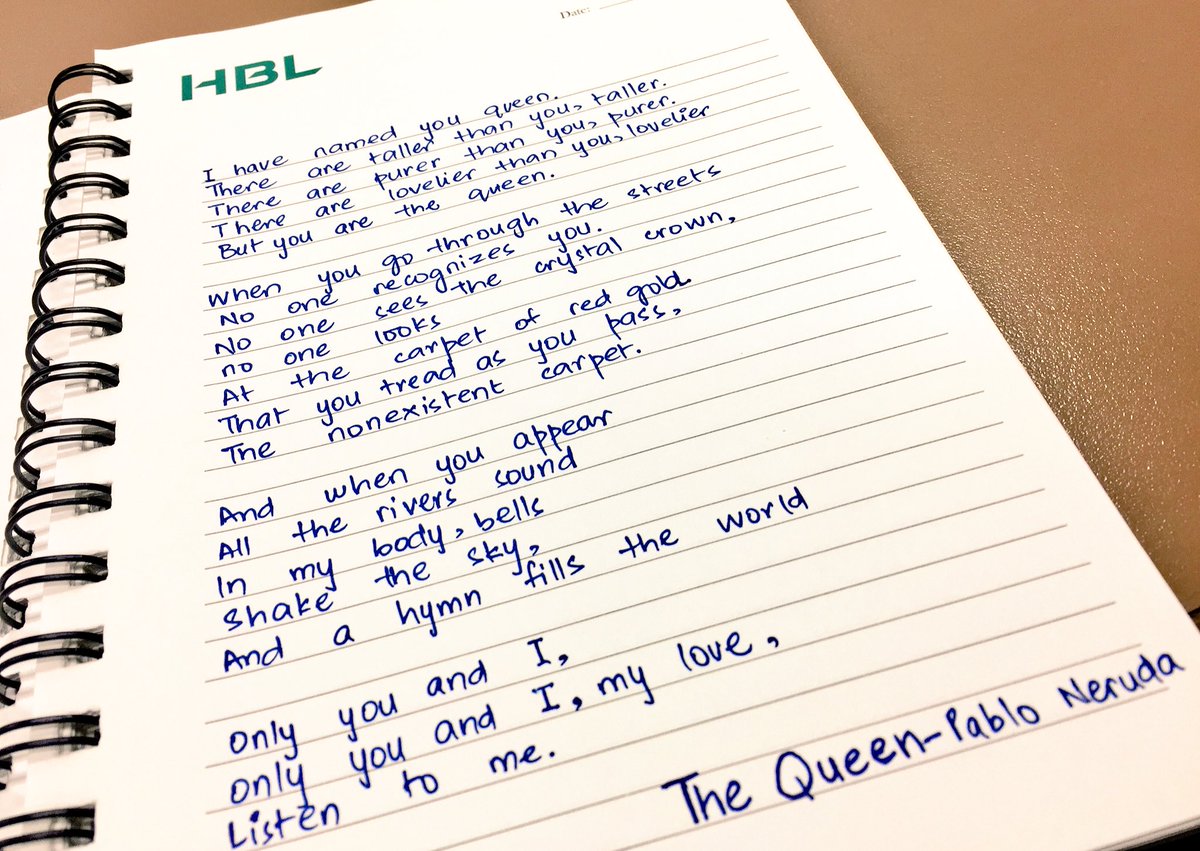 Date:
HBL
I have named you queen.
There are taller than you, taller.
There are purer than you, purer.
There are lovelier than you, lovelier
But you are the queen.
When you go through the streets
No one recognizes you.
No one sees the crystal crown,
no one looks
At the carpet of red gold
That you tread as you pass,
The nonexistent carpet.
And when you appear
All the rivers sound
In my body, bells
Shake the sky,
And a hymn fills the world
only you and I,
only you and I, my love,
Listen to me.
The Queen-Pablo Neruda